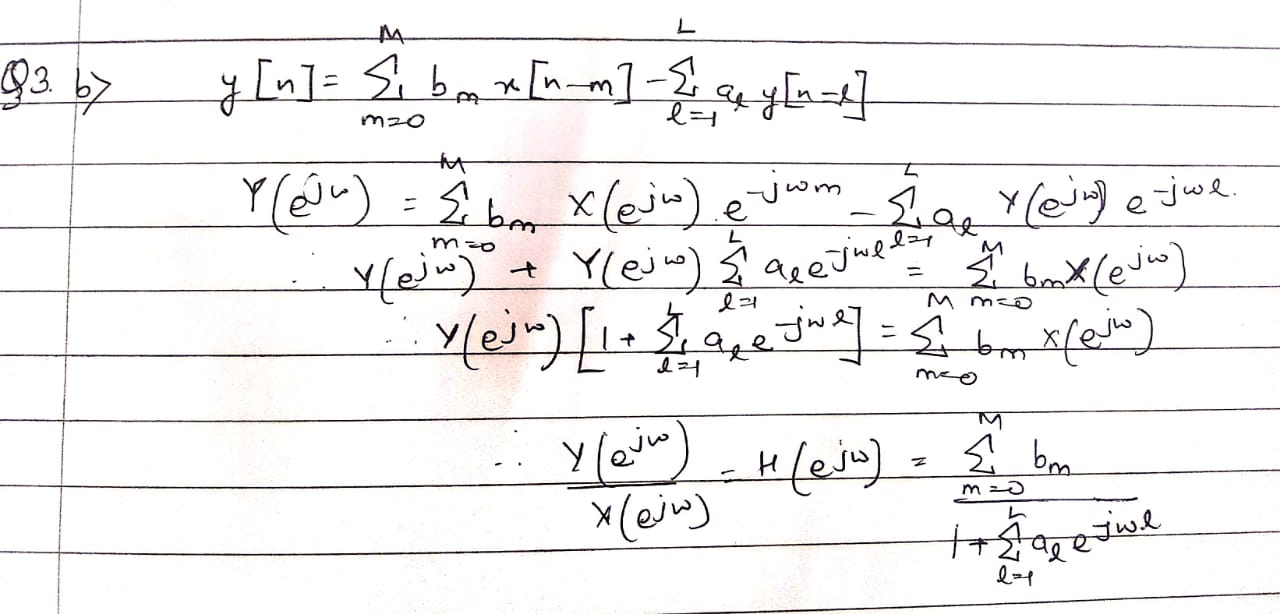 Q3. b) y[n] = \sum_{m=0}^{M} b_m x[n-m] - \sum_{l=1}^{L} a_l y[n-l]
Y(e^{jw}) = \sum_{m=0}^{M} b_m X(e^{jw}) . e^{-jwm} - \sum_{l=1}^{L} a_l Y(e^{jw}) e^{-jwl}.
∴ Y(e^{jw}) + Y(e^{jw}) \sum_{l=1}^{L} a_l e^{-jwl} = \sum_{m=0}^{M} b_m X(e^{jw})
∴ Y(e^{jw}) [1 + \sum_{l=1}^{L} a_l e^{-jwl}] = \sum_{m=0}^{M} b_m X(e^{jw})
∴ \frac{Y(e^{jw})}{X(e^{jw})} = H(e^{jw}) = \frac{\sum_{m=0}^{M} b_m}{1 + \sum_{l=1}^{L} a_l e^{-jwl}}